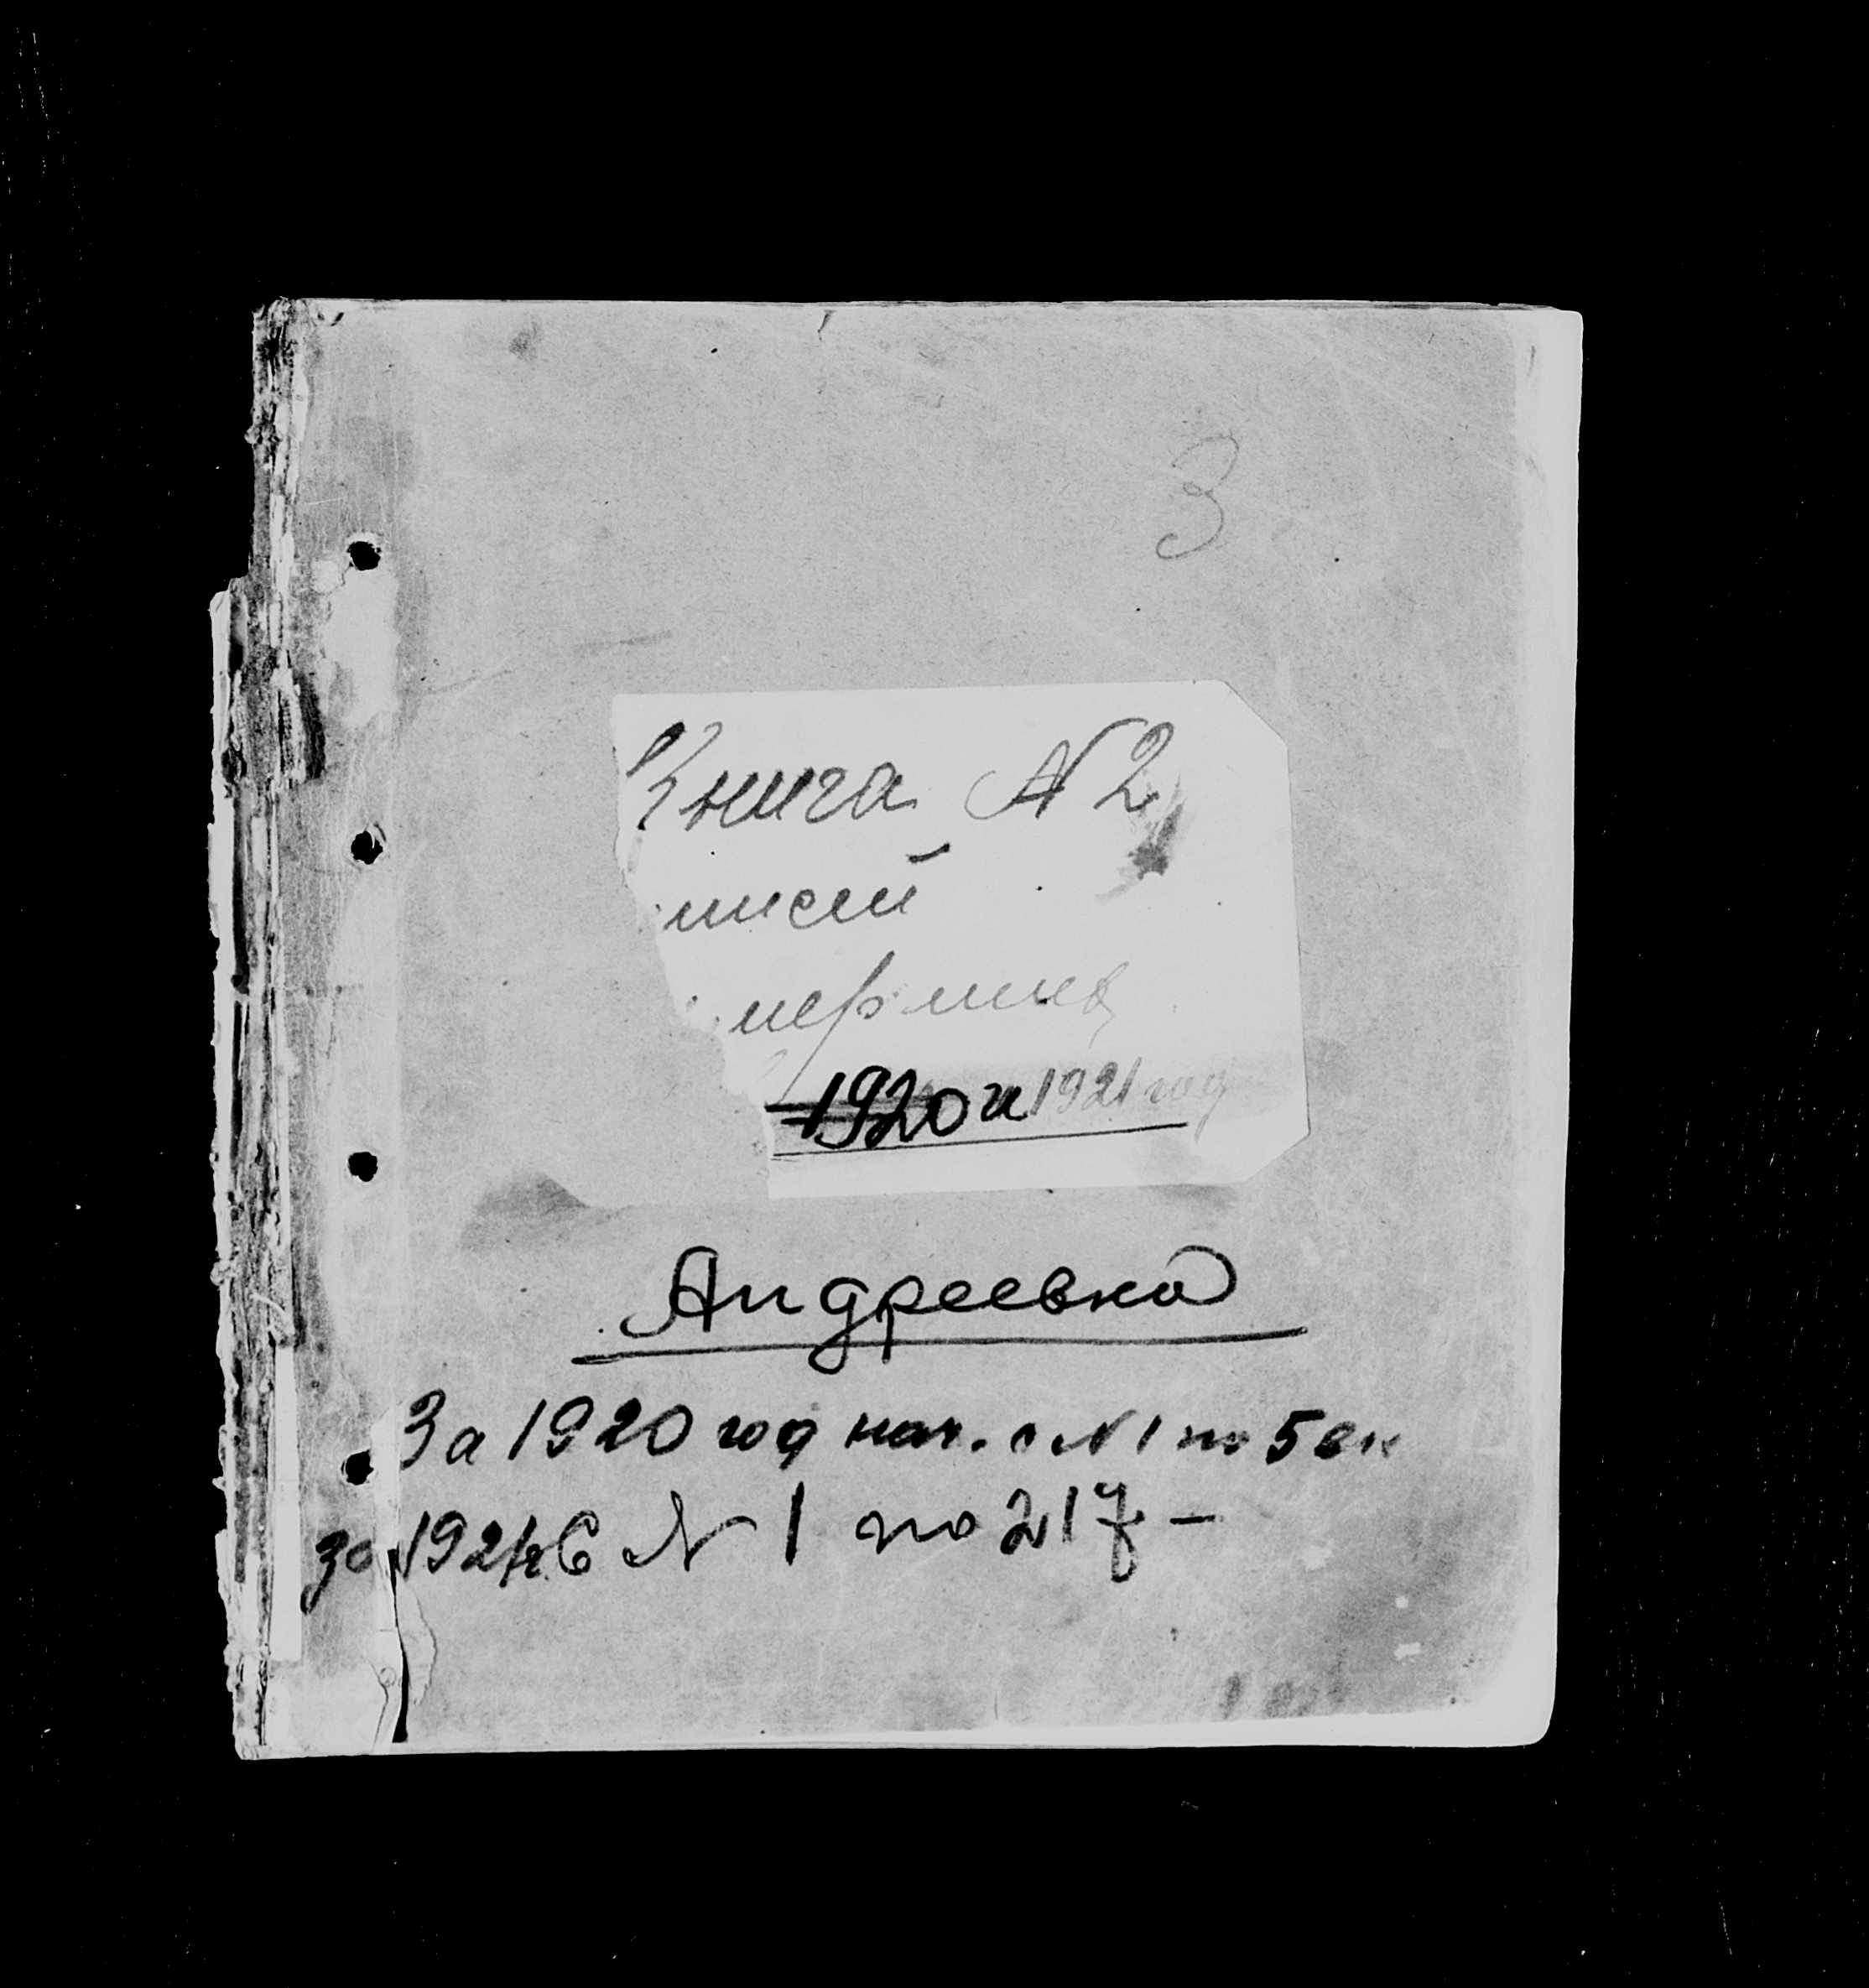 3
Книга № 2
писей
мерших
1920 и 1921 год
Андреевка
За 1920 год нач. с № 1 по 5 вк
за 1921 г. с № 1 по 217 –